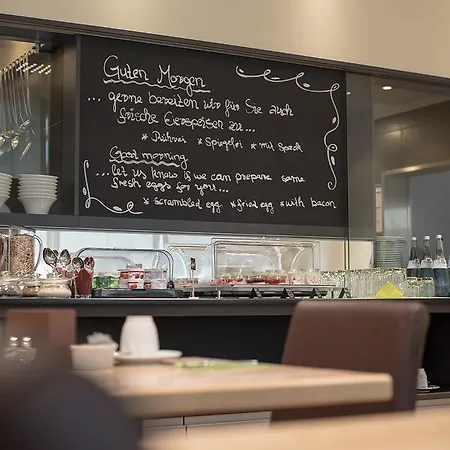 Guten Morgen
... gerne bereiten wir für Sie auch
frische Eierspeisen zu...
* Rührei * Spiegelei * mit Speck
Good morning
... let us know if we can prepare some
fresh eggs for you...
* scrambled egg * fried egg * with bacon